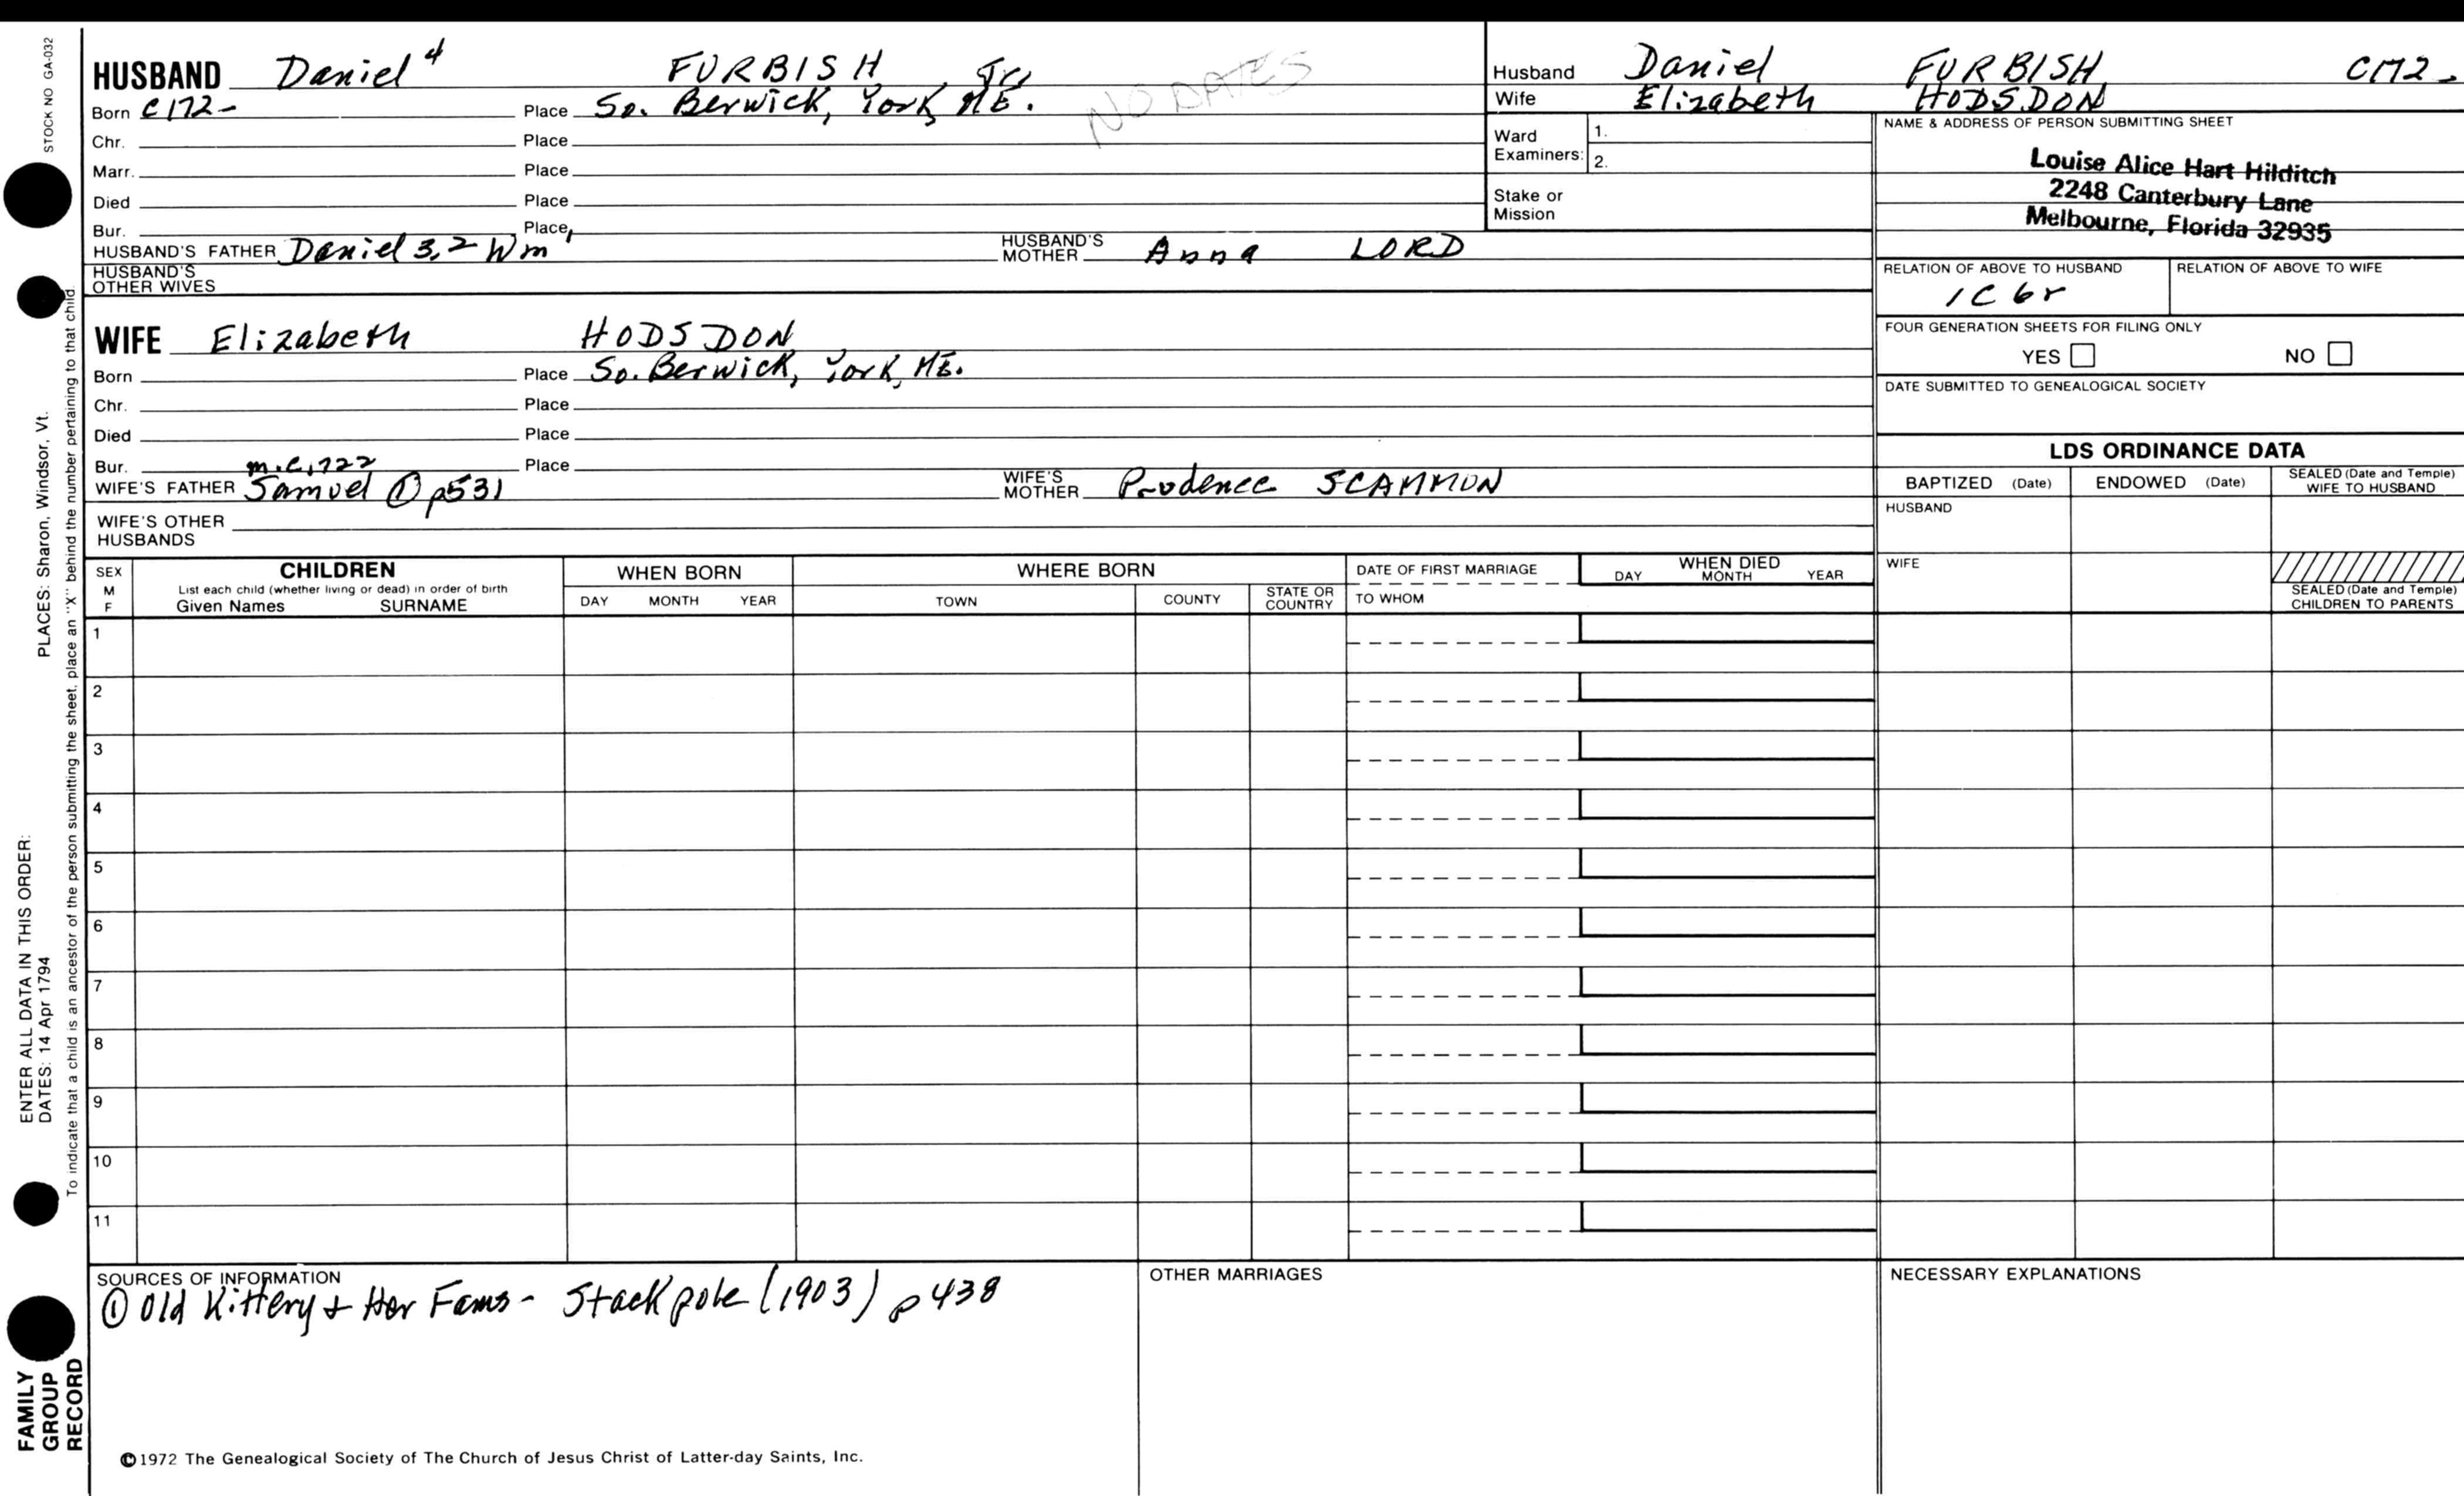 STOCK NO GA-032
HUSBAND Daniel 4 FURBISH Jr.
NO DATES
Born c172- Place So. Berwick, York, ME.
Chr. Place
Marr. Place
Died Place
Bur. Place
HUSBAND'S FATHER Daniel 3,2 Wm 1 HUSBAND'S MOTHER Anna LORD
HUSBAND'S OTHER WIVES
WIFE Elizabeth HODSDON
Born Place So. Berwick, York, ME.
Chr. Place
Died Place
Bur. m.c,722 Place
WIFE'S FATHER Samuel ① p531 WIFE'S MOTHER Prudence SCAMMON
WIFE'S OTHER HUSBANDS
Husband Daniel FURBISH c172-
Wife Elizabeth HODSDON
Ward Examiners: 1.
2.
Stake or Mission
NAME & ADDRESS OF PERSON SUBMITTING SHEET
Louise Alice Hart Hilditch
2248 Canterbury Lane
Melbourne, Florida 32935
RELATION OF ABOVE TO HUSBAND RELATION OF ABOVE TO WIFE
1C 6r
FOUR GENERATION SHEETS FOR FILING ONLY
YES NO
DATE SUBMITTED TO GENEALOGICAL SOCIETY
LDS ORDINANCE DATA
BAPTIZED (Date) ENDOWED (Date) SEALED (Date and Temple) WIFE TO HUSBAND
HUSBAND
WIFE
SEALED (Date and Temple) CHILDREN TO PARENTS
SEX M F
CHILDREN
List each child (whether living or dead) in order of birth
Given Names SURNAME
WHEN BORN
DAY MONTH YEAR
WHERE BORN
TOWN COUNTY STATE OR COUNTRY
DATE OF FIRST MARRIAGE
TO WHOM
WHEN DIED
DAY MONTH YEAR
1
2
3
4
5
6
7
8
9
10
11
SOURCES OF INFORMATION
① Old Kittery & Her Fams - Stackpole (1903) p 438
OTHER MARRIAGES
NECESSARY EXPLANATIONS
©1972 The Genealogical Society of The Church of Jesus Christ of Latter-day Saints, Inc.
ENTER ALL DATA IN THIS ORDER:
DATES: 14 Apr 1794 PLACES: Sharon, Windsor, Vt.
To indicate that a child is an ancestor of the person submitting the sheet, place an "X" behind the number pertaining to that child.
FAMILY
GROUP
RECORD